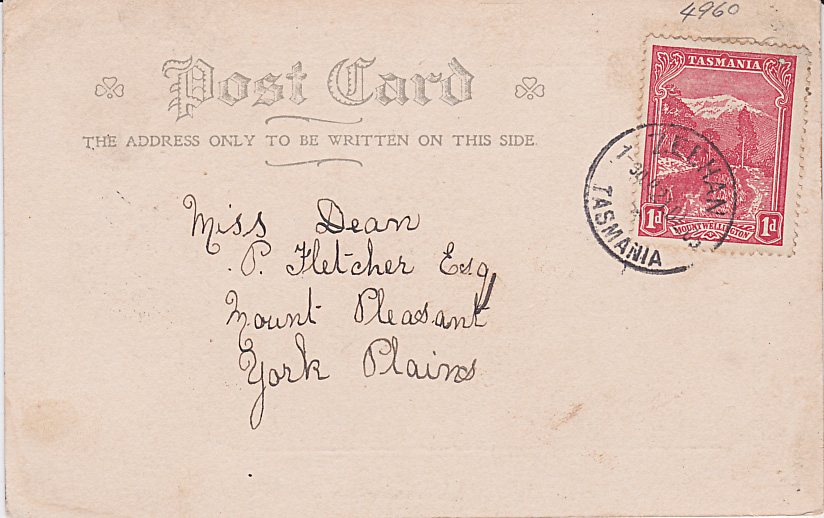 4960
TASMANIA
Post Card
THE ADDRESS ONLY TO BE WRITTEN ON THIS SIDE.
ZEEHAN
TASMANIA
1d MOUNT WELLINGTON 1d
Miss Dean
P. Fletcher Esq
Mount Pleasant
York Plains